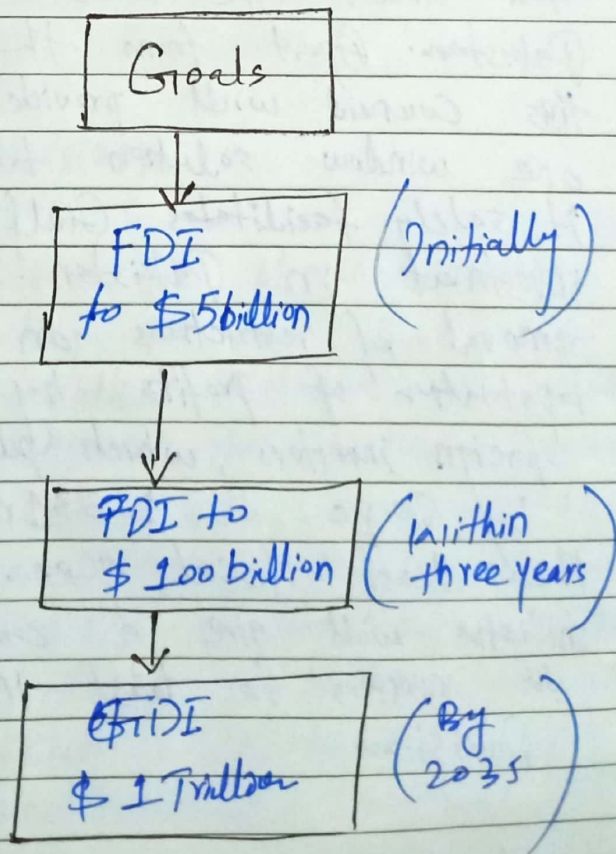 Goals
FDI
to $ 5 billion
(Initially)
FDI to
$ 100 billion
(Within
three years)
GDI
$ 1 Trillion
(By
2035)